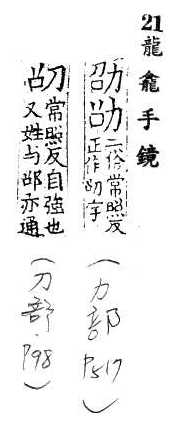 21 龍龕手鏡
二俗常照反
正作字
(力部 P517)
常照反自強也
又姓与邵亦通
(刀部・P98)